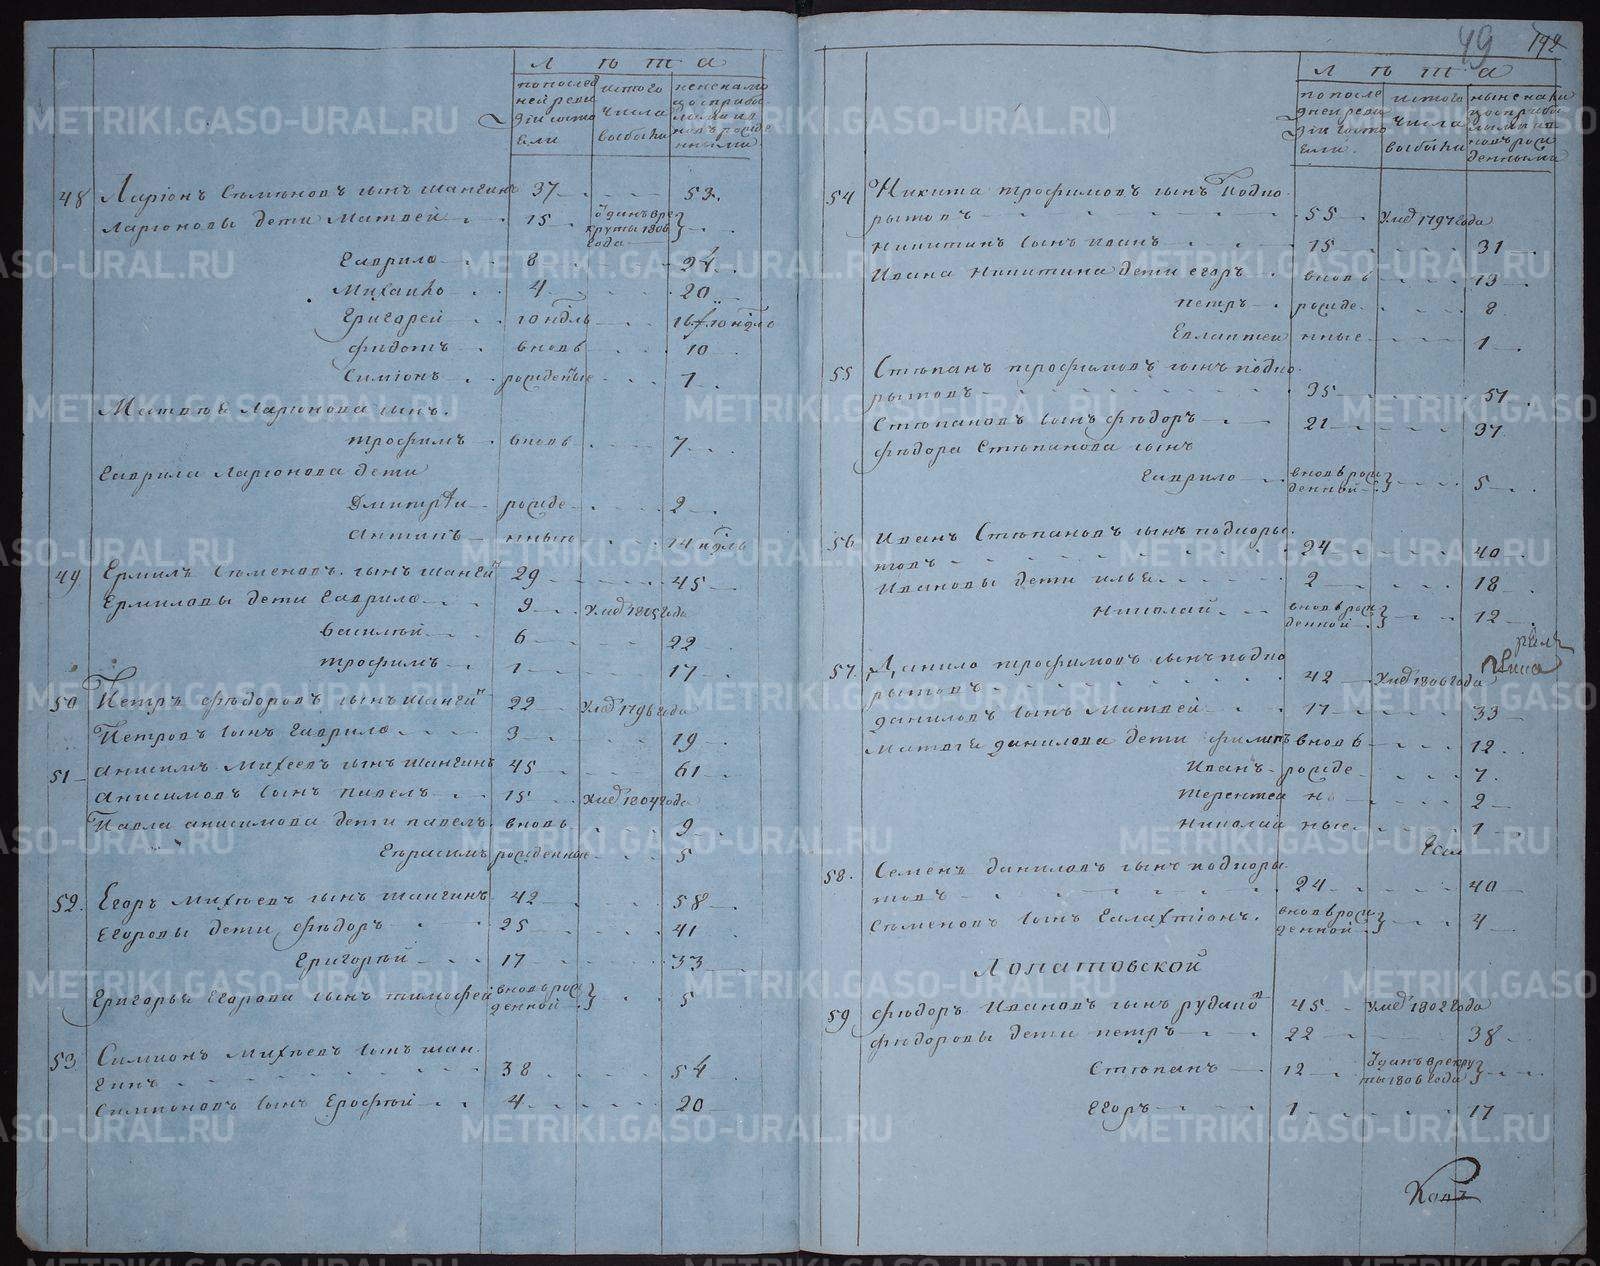 Лѣта
по послед
ней реви
зіи состо
яли
ис того
числа
выбыли
48 Ларіонъ Сѣменовъ сынъ шангинъ 37 53.
Ларіоновы дети Матвей 15 Отданъ в ре
круты 1806
года
Гаврило 8 24
Михаило 4 20
Григорей 10 ндль 16 10 ндль
Фидотъ вновь 10
Симіонъ рожденные 1
Матвѣя Ларіонова сынъ.
трофимъ вновь 7
Гаврила Ларіонова дети
Дмитрѣи рожде 2
Антипъ нные 14 ндль
49 Ермилъ Сѣменовъ сынъ шангй 29 45
Ермиловы дети Гаврило 9 Умѣр 1805 года
Василѣй 6 22
трофимъ 1 17
50 Петръ Фѣдоровъ сынъ шангй 22 Умѣр 1796 года
Петровъ сынъ Гаврило 3 19
51 Анисимъ Михеевъ сынъ шангинъ 45 61
Анисимовъ сынъ павелъ 15 Умѣр 1804 года
Павла Анисимова дети павелъ вновь 9
Герасимъ рожденные 5
52. Егоръ Михѣевъ сынъ шангинъ 42 58
Егоровы дети Фѣдоръ 25 41
Григорѣй 17 33
Григорья Егорова сынъ тимофей вновь рож
денной 5
53 Симионъ Михѣевъ сынъ шан
гинъ 38 54
Симионовъ сынъ Ерофѣй 4 20
49 192
Лѣта
по после
дней реви
зіи состо
яли.
ис того
числа
выбыли
54 Никита трофимовъ сынъ Подко
рытовъ 55 Умѣр 1797 года
Никитинъ сынъ иванъ 15 31
Ивана Никитина дети егоръ вновь 13
петръ рожде 8
Евлантеи нные 1
55 Стѣпанъ трофимовъ сынъ подко
рытовъ 35 51
Стѣпановъ сынъ Фѣдоръ 21 37
Фѣдора Стѣпанова сынъ
Гаврило вновь рож
денной 5
56 Иванъ Стѣпановъ сынъ подкоры
товъ 24 40
Ивановы дети илья 2 18
Николай вновь рож
денной 12
57. Данило трофимовъ сынъ подко
рытовъ 42 Умѣр 1806 года
Даниловъ сынъ Матвей 17 33
Матвѣя Данилова дети филипъ вновь 12
Иванъ рожде 7
терентеи н 2
Николай ные 1
58. Семенъ Даниловъ сынъ подкоры
товъ 24 40
Сѣменовъ сынъ Галахтіонъ. вновь рож
денной 4
Лопатовской
59 Фѣдоръ Ивановъ сынъ рудако 45 Умѣр 1802 года
Фѣдоровы дети петръ 22 38
Стѣпанъ 12 Отданъ в рекру
ты 1806 года
Егоръ 1 17